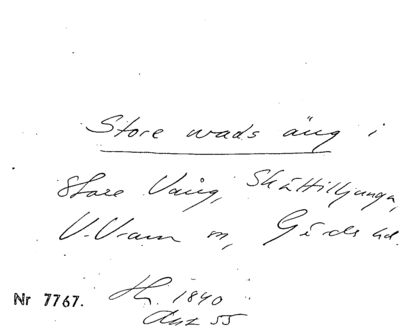 Store wads äng i
Store Vång, Skättilljunga,
V. Vram sn, Gärds hd.
Nr 7767. H. 1840
55